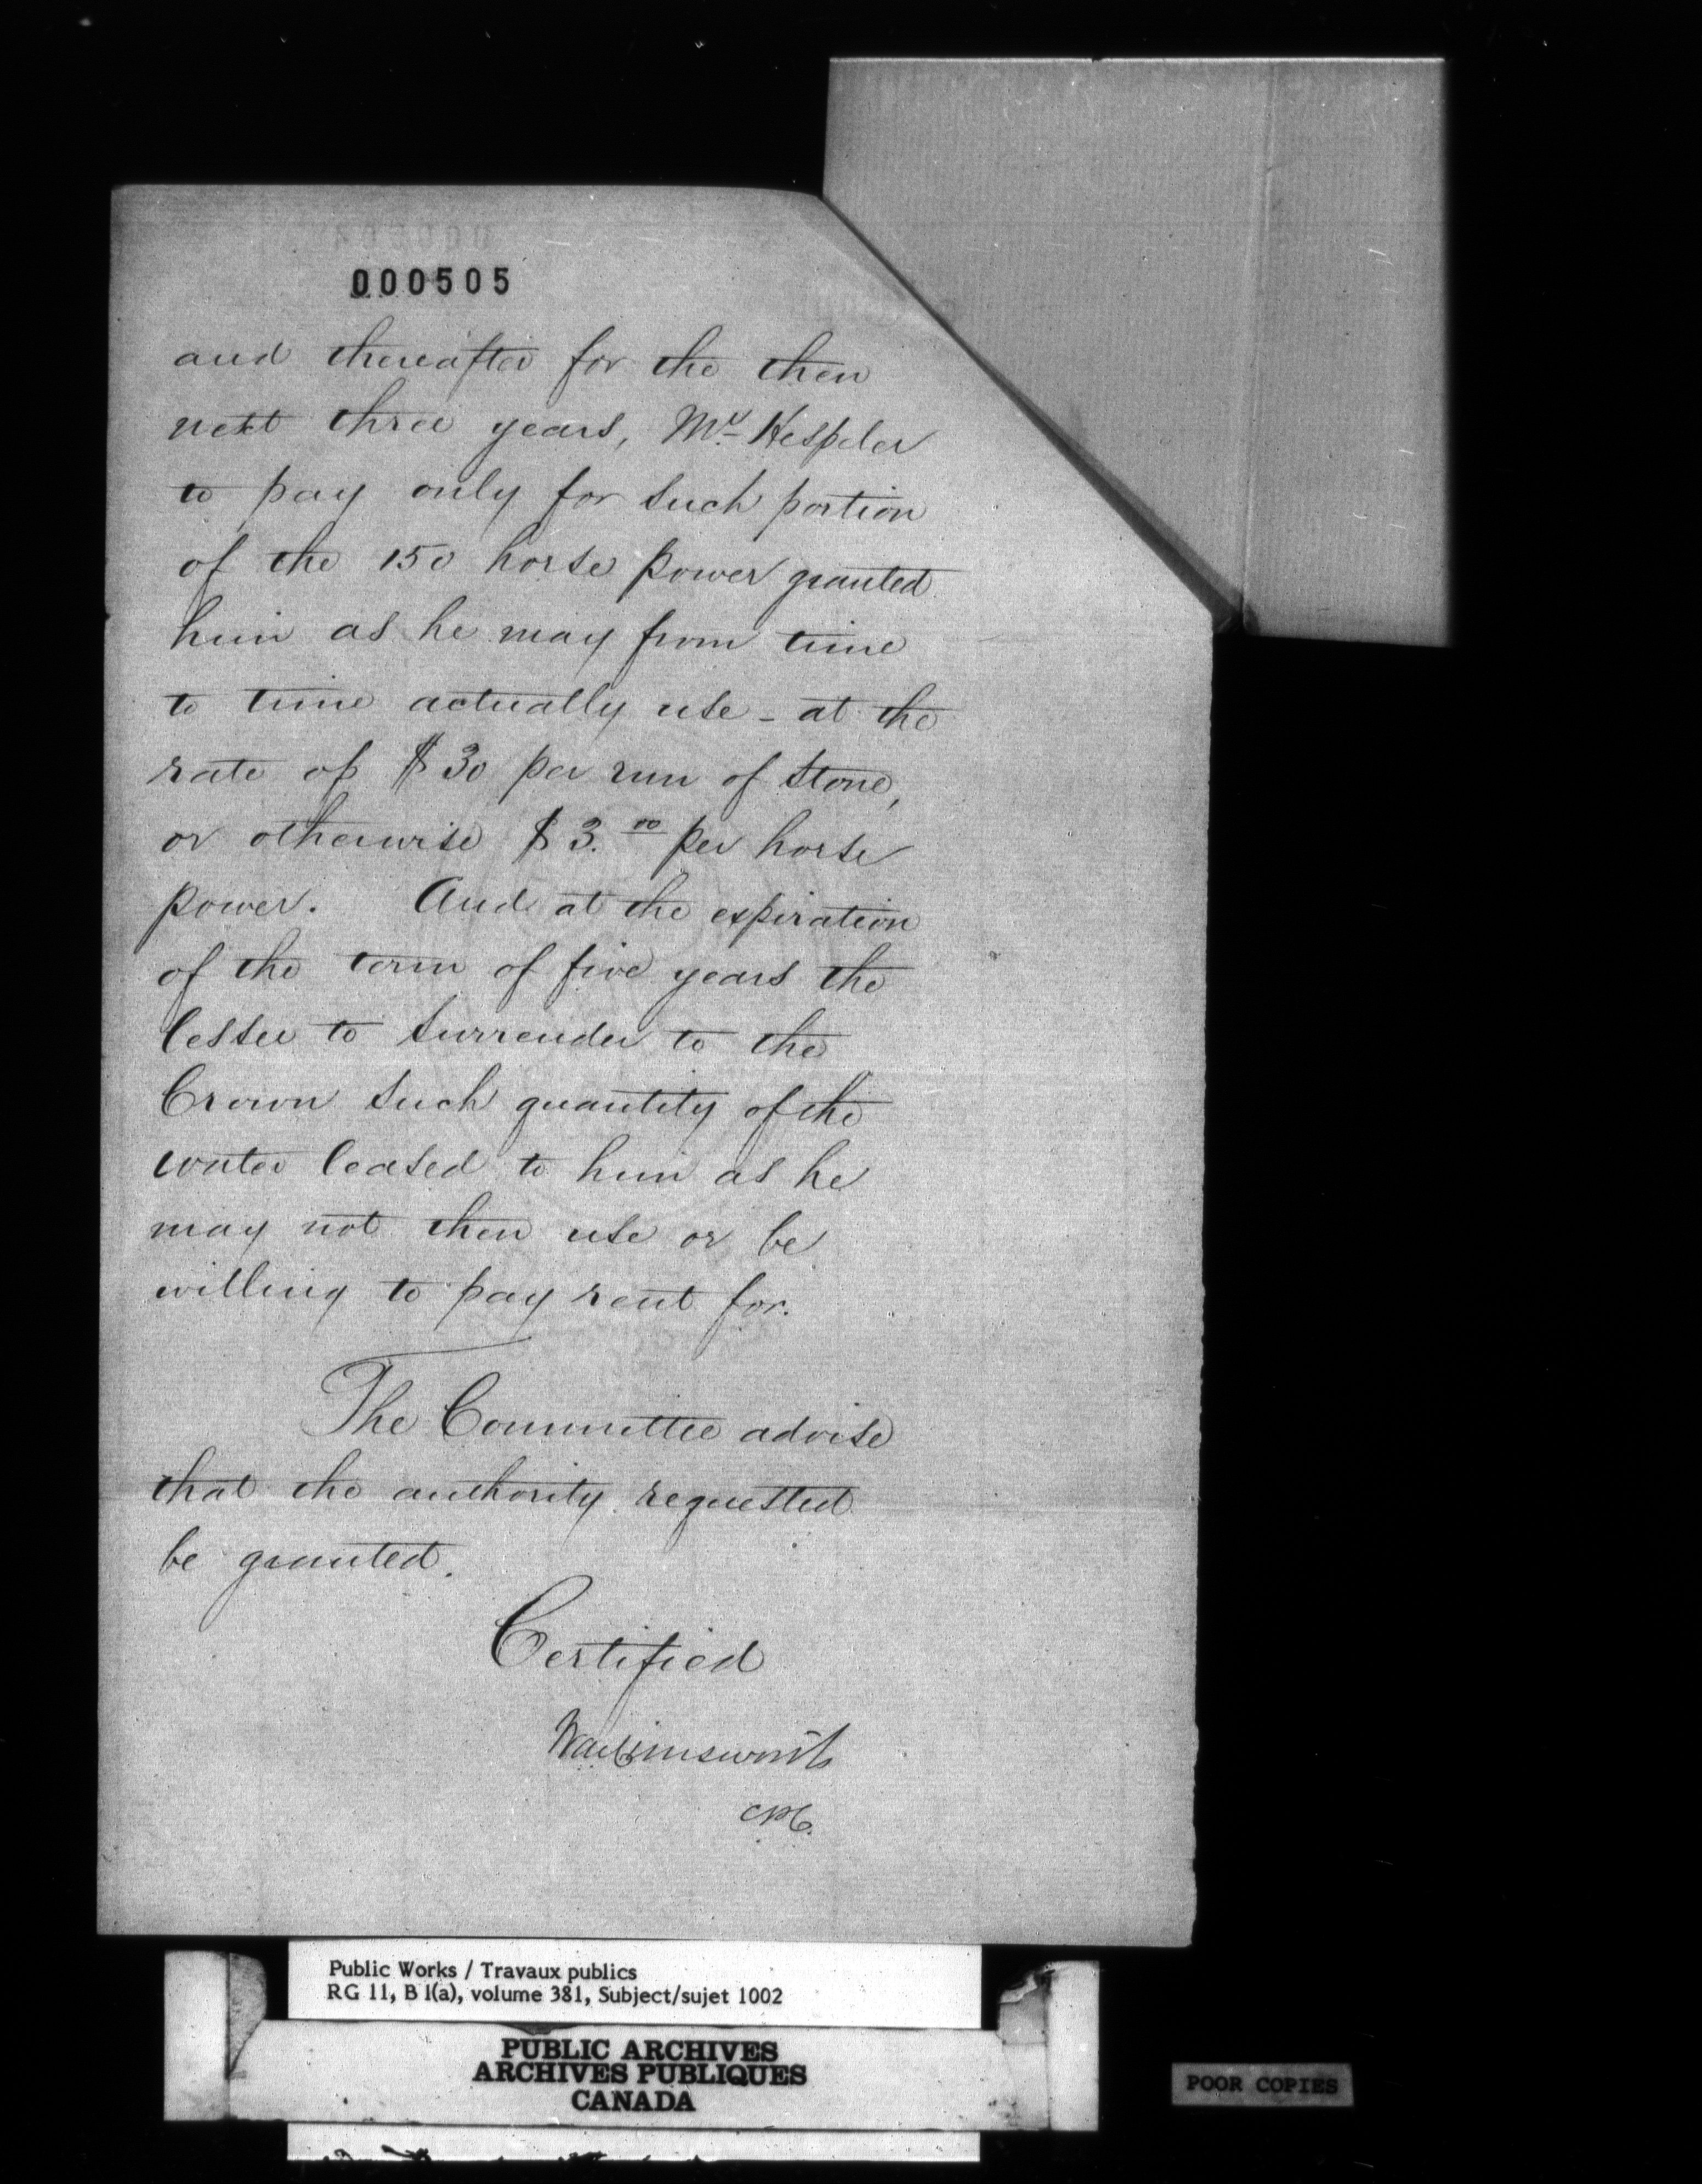 000505
and thereafter for the then
next three years, Mr. Hespeler
to pay only for such portion
of the 150 horse power granted
him as he may from time
to time actually use - at the
rate of $30 per run of stone,
or otherwise $3.00 per horse
power. And at the expiration
of the term of five years the
lessee to surrender to the
Crown such quantity of the
water leased to him as he
may not then use or be
willing to pay rent for.
The Committee advise
that the authority requested
be granted.
Certified
Public Works / Travaux publics
RG 11, B 1(a), volume 381, Subject/sujet 1002
PUBLIC ARCHIVES
ARCHIVES PUBLIQUES
CANADA
POOR COPIES